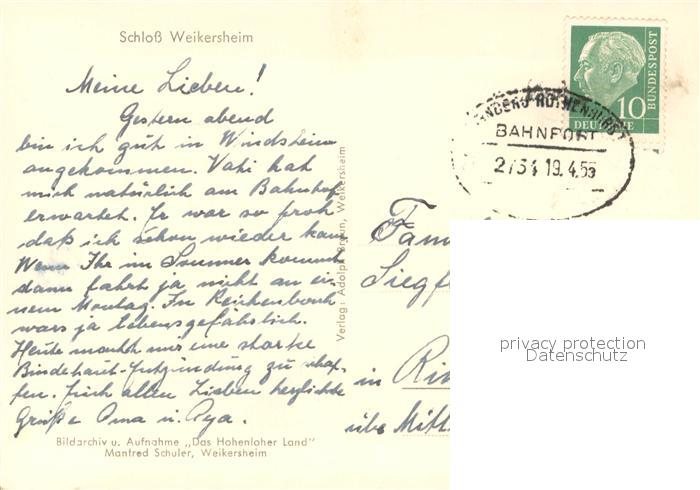 Schloß Weikersheim
Meine Lieben!
Gestern abend
bin ich gut in Windsheim
angekommen. Vati hat
mich natürlich am Bahnhof
erwartet. Er war so froh
daß ich schon wieder kam
Wenn Ihr im Sommer kommt
dann fahrt ja nicht an ei-
nem Montag. In Reichenbach
wars ja lebensgefährlich.
Heute macht mir eine starke
Bindehaut-Entzündung zu schaf-
fen. Euch allen Lieben herzlichste
Grüße Oma u.
Bildarchiv u. Aufnahme „Das Hohenloher Land"
Manfred Schuler, Weikersheim
Verlag: Adolph Braun, Weikersheim
DEUTSCHE
BUNDESPOST
10
ROTHENBURG
BAHNPOST
19.4.55
Fam
Siegf
in
übe Mitt
privacy protection
Datenschutz